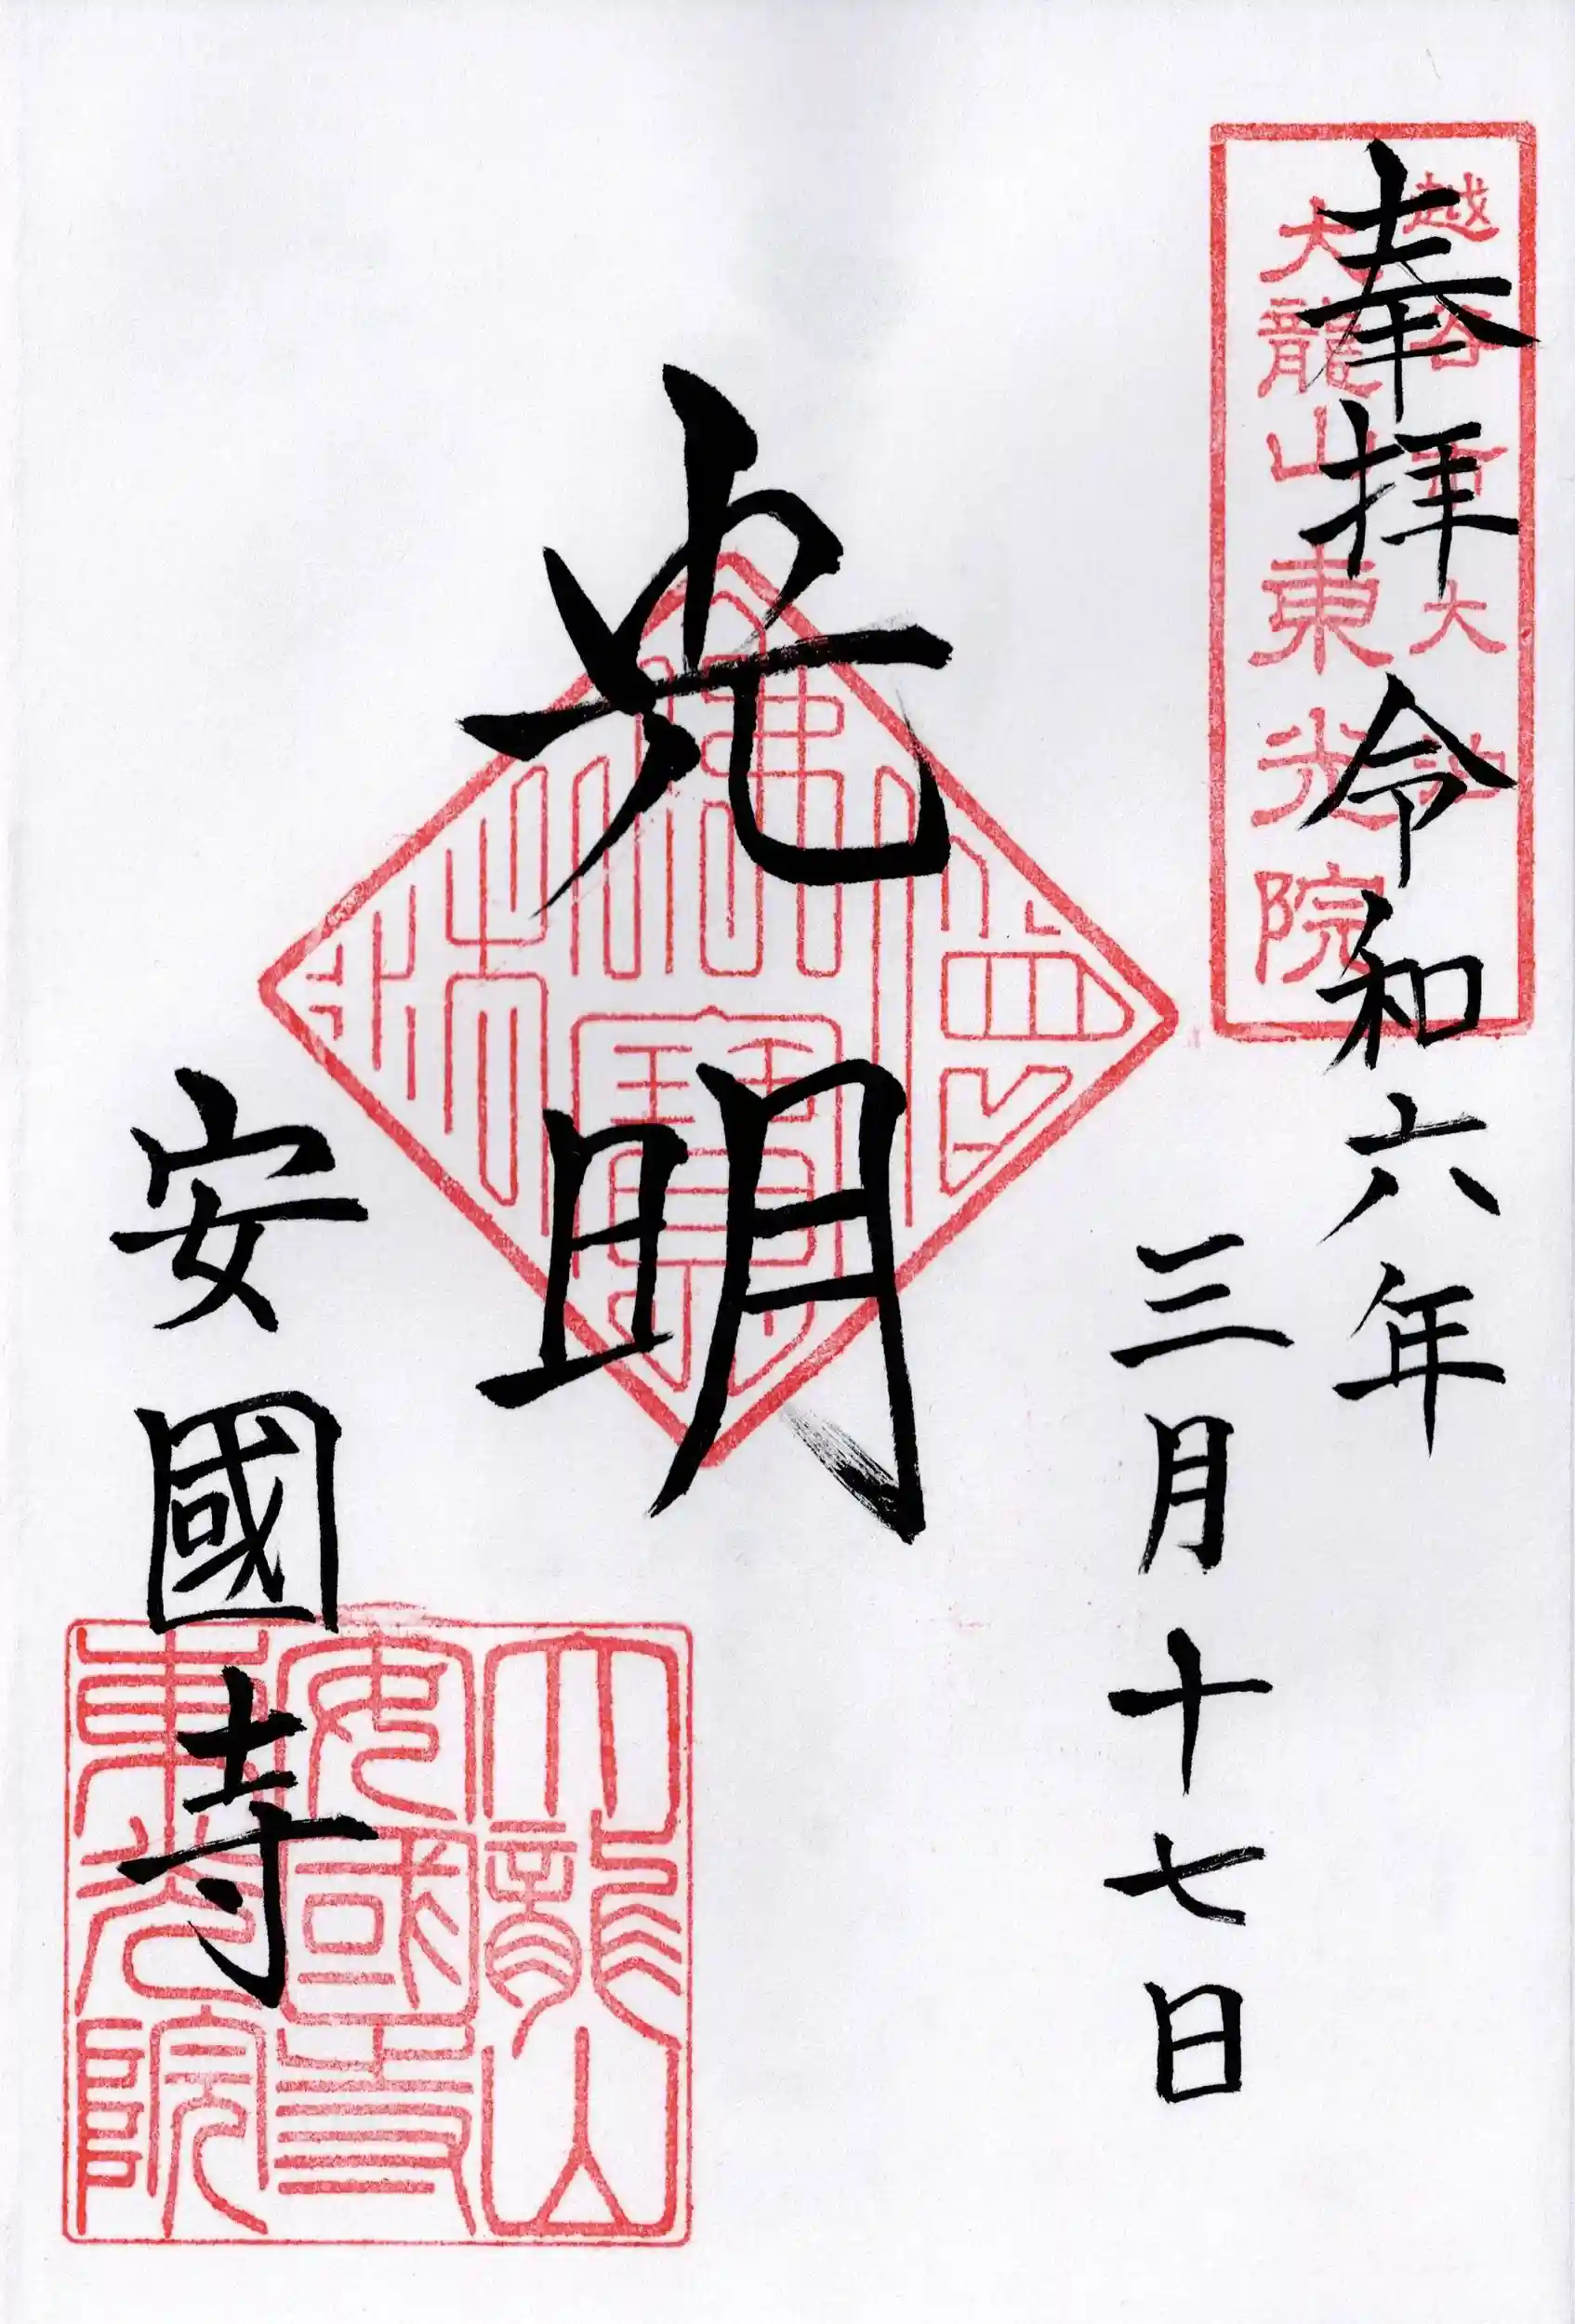 越谷市大泊
大龍山東光院
奉拝 令和六年
三月十七日
光明
安國寺
大龍山
安國寺
東光院